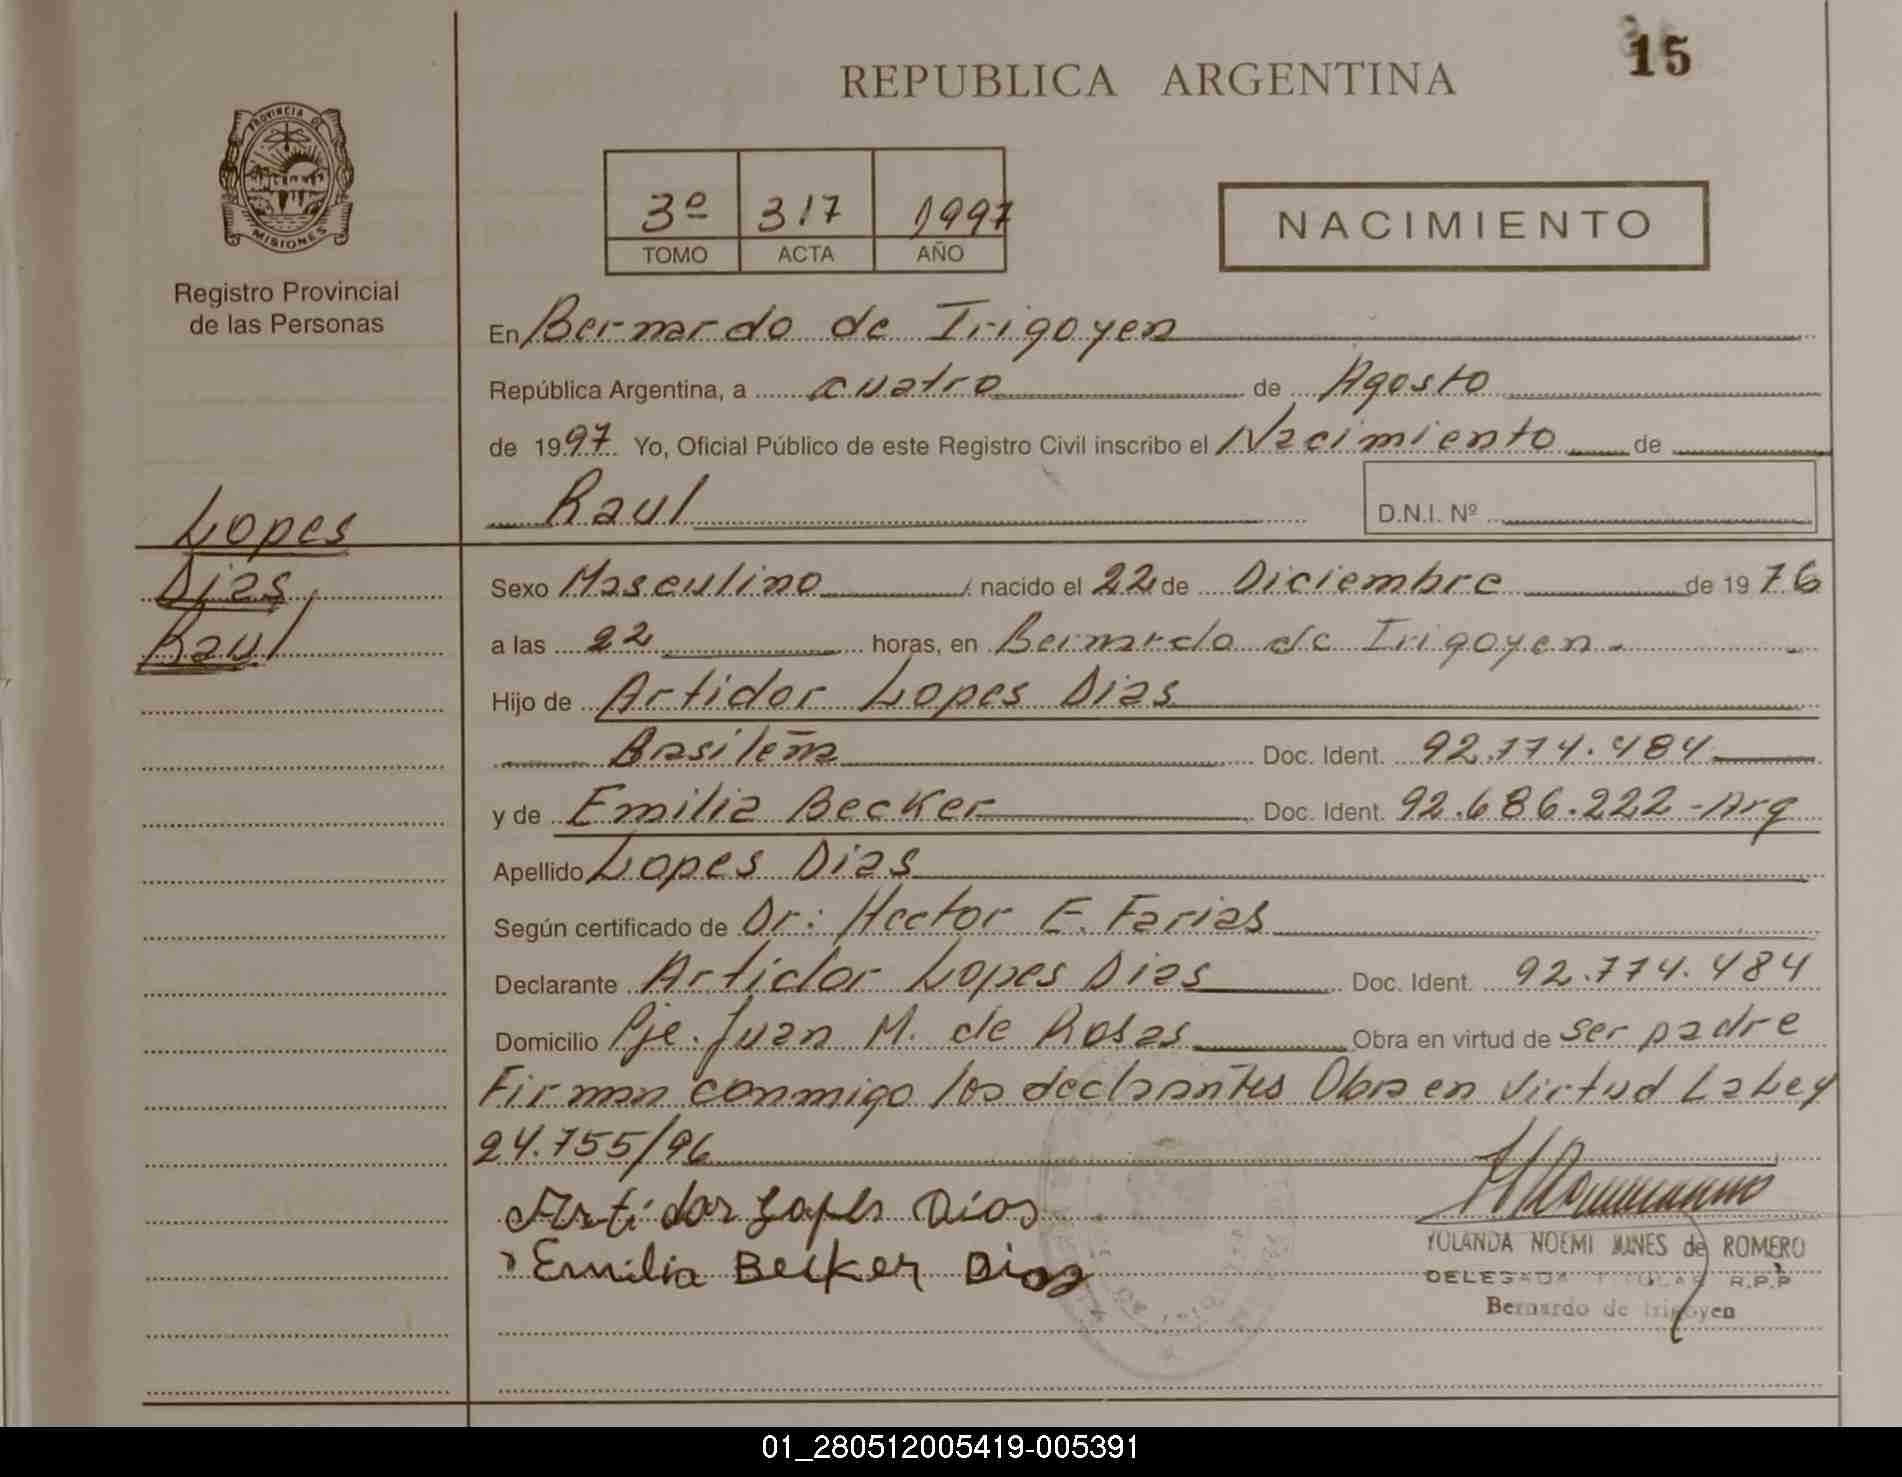 15
REPUBLICA ARGENTINA
PROVINCIA DE
MISIONES
Registro Provincial
de las Personas
3º 317 1997
TOMO ACTA AÑO
NACIMIENTO
En Bernardo de Irigoyen
República Argentina, a cuatro de Agosto
de 1997 Yo, Oficial Público de este Registro Civil inscribo el Nacimiento de
Raul D.N.I. Nº
Lopes
Dias
Raul
Sexo Masculino nacido el 22 de Diciembre de 1976
a las 22 horas, en Bernardo de Irigoyen.-
Hijo de Artidor Lopes Dias
Brasileña Doc. Ident. 92.774.484
y de Emilia Becker Doc. Ident. 92.686.222-Arg
Apellido Lopes Dias
Según certificado de Dr: Hector E. Farias
Declarante Artidor Lopes Dias Doc. Ident. 92.774.484
Domicilio Pje. Juan M. de Rosas Obra en virtud de ser padre
Firman conmigo los declarantes Obra en virtud La Ley
24.755/96
Artidor Lopes Dias
Emilia Becker Dias
YOLANDA NOEMI de ROMERO
DELEGADA TITULAR R.P.P
Bernardo de Irigoyen
01_280512005419-005391